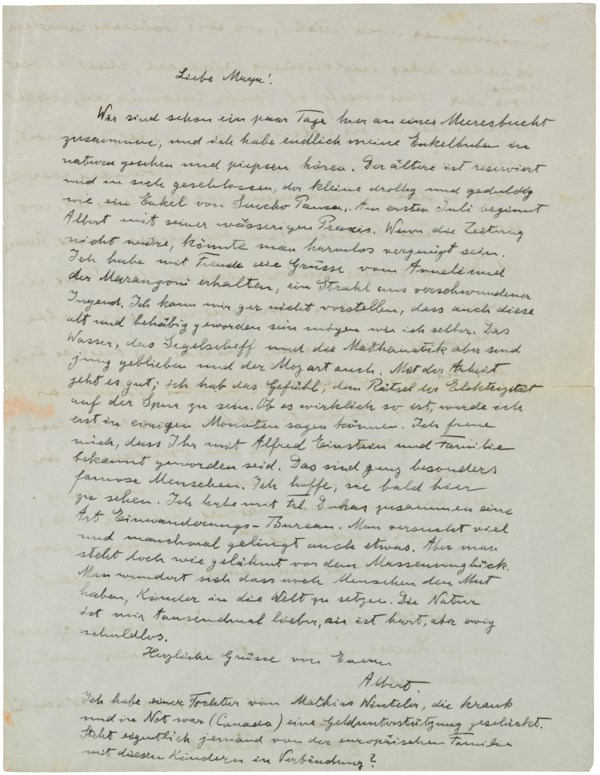 Liebe Maya!
Wir sind schon ein paar Tage hier an einer Meeresbucht
zusammen, und ich habe endlich meine Enkelbuben in
natura gesehen und piepsen hören. Der ältere ist reserviert
und in sich geschlossen, der kleine drollig und geduldig
wie ein Enkel von Sancho Pansa. Am ersten Juli beginnt
Albert mit seiner wässerigen Praxis. Wenn die Zeitung
nicht wäre, könnte man harmlos vergnügt sein.
Ich habe mit Freude die Grüsse vom Anneli und
der Marangoni erhalten, ein Strahl aus verschwundener
Jugend. Ich kann mir gar nicht vorstellen, dass auch diese
alt und behäbig geworden sein mögen wie ich selber. Das
Wasser, das Segelschiff und die Mathematik aber sind
jung geblieben und der Mozart auch. Mit der Arbeit
geht es gut; ich hab das Gefühl, dem Rätsel der Elektrizität
auf der Spur zu sein. Ob es wirklich so ist, werde ich
erst in einigen Monaten sagen können. Ich freue
mich, dass Ihr mit Alfred Einstein und Familie
bekannt geworden seid. Das sind ganz besonders
famose Menschen. Ich hoffe, sie bald hier
zu sehen. Ich habe mit Frl. Dukas zusammen eine
Art Einwanderungs-Bureau. Man versucht viel
und manchmal gelingt auch etwas. Aber man
steht doch wie gelähmt vor dem Massenunglück.
Man wundert sich dass noch Menschen den Mut
haben, Kinder in die Welt zu setzen. Die Natur
ist mir tausendmal lieber, sie ist hart, aber ewig
schuldlos.
Herzliche Grüsse von Eurem
Albert.
Ich habe einer Tochter von Mathias Winteler, die krank
und in Not war (Canada) eine Geldunterstützung geschickt.
Steht eigentlich jemand von der europäischen Familie
mit diesen Kindern in Verbindung?